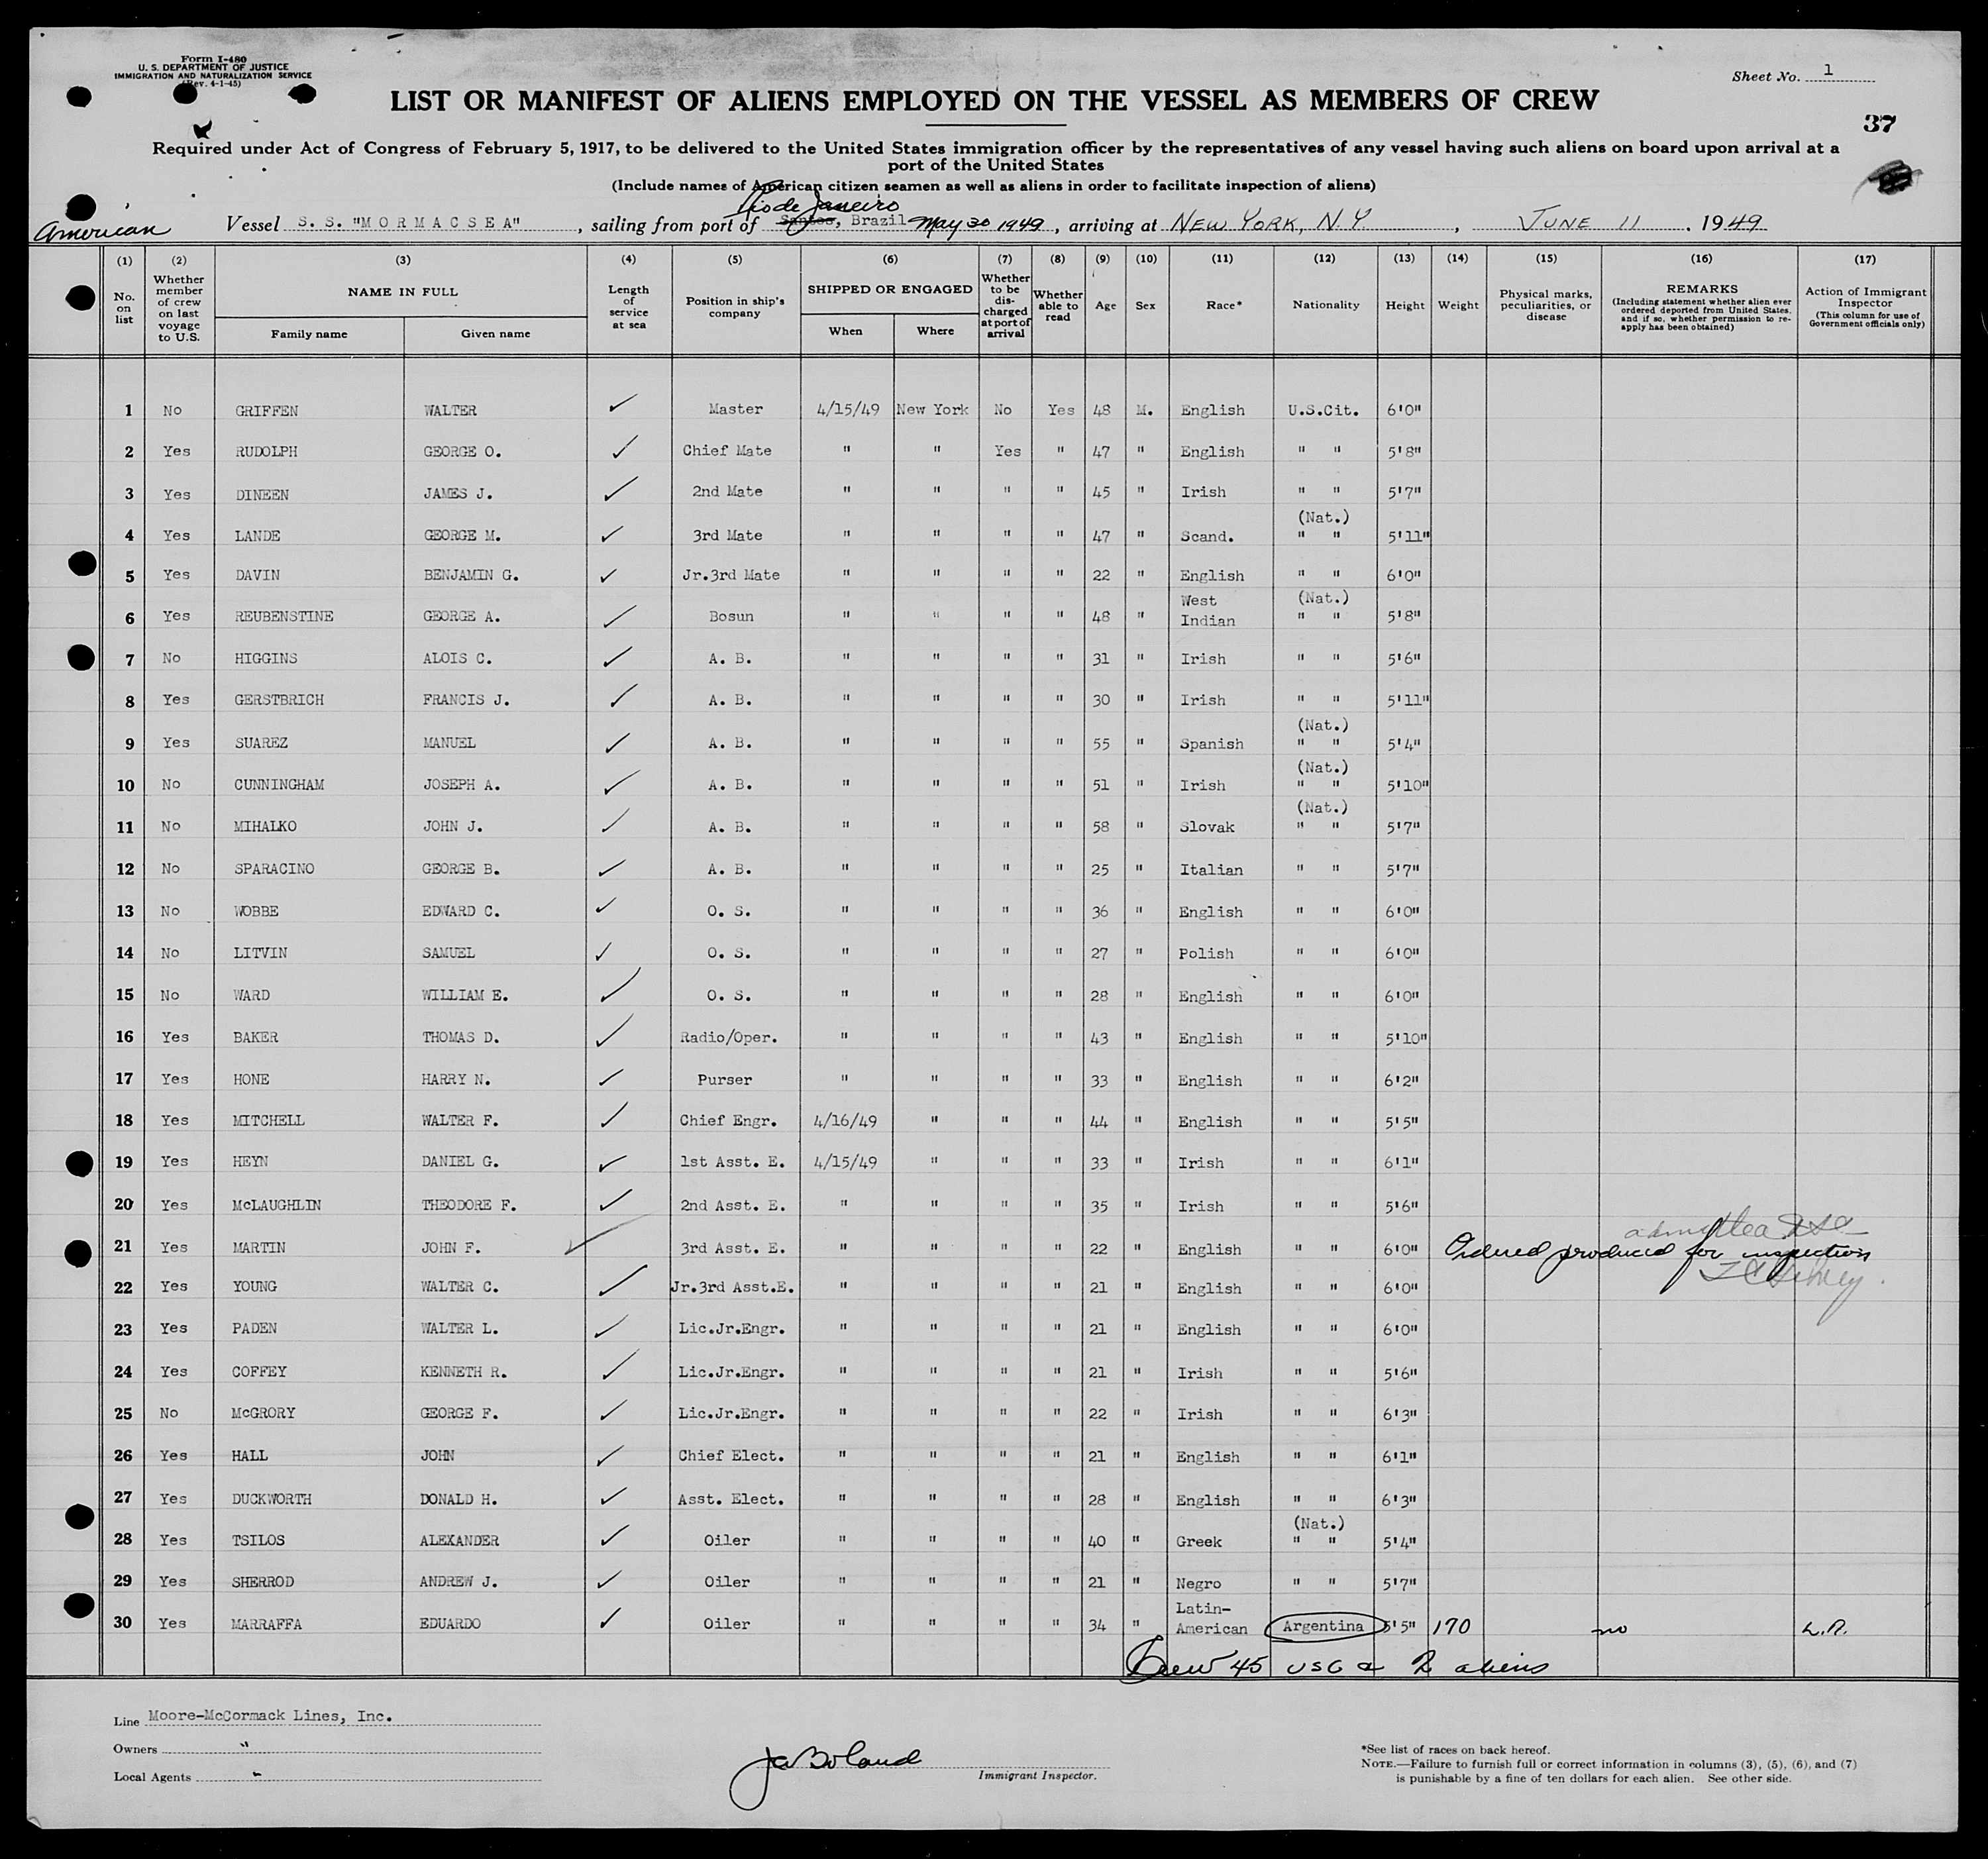 Form I-480
U. S. DEPARTMENT OF JUSTICE
IMMIGRATION AND NATURALIZATION SERVICE
(Rev. 4-1-45)
Sheet No. 1
LIST OR MANIFEST OF ALIENS EMPLOYED ON THE VESSEL AS MEMBERS OF CREW
37
Required under Act of Congress of February 5, 1917, to be delivered to the United States immigration officer by the representatives of any vessel having such aliens on board upon arrival at a
port of the United States
(Include names of American citizen seamen as well as aliens in order to facilitate inspection of aliens)
Rio de Janeiro
American Vessel S. S. "MORMACSEA", sailing from port of Santos, Brazil May 30 1949, arriving at NEW YORK, N.Y., JUNE 11, 1949
(1) (2) (3) (4) (5) (6) (7) (8) (9) (10) (11) (12) (13) (14) (15) (16) (17)
No. on list Whether member of crew on last voyage to U.S. NAME IN FULL Family name Given name Length of service at sea Position in ship's company SHIPPED OR ENGAGED When Where Whether to be discharged at port of arrival Whether able to read Age Sex Race* Nationality Height Weight Physical marks, peculiarities, or disease REMARKS (Including statement whether alien ever ordered deported from United States, and if so, whether permission to re-apply has been obtained) Action of Immigrant Inspector (This column for use of Government officials only)
1 No GRIFFEN WALTER ✓ Master 4/15/49 New York No Yes 48 M. English U.S.Cit. 6'0"
2 Yes RUDOLPH GEORGE O. ✓ Chief Mate " " Yes " 47 " English " " 5'8"
3 Yes DINEEN JAMES J. ✓ 2nd Mate " " " " 45 " Irish " " 5'7"
(Nat.)
4 Yes LANDE GEORGE M. ✓ 3rd Mate " " " " 47 " Scand. " " 5'11"
5 Yes DAVIN BENJAMIN G. ✓ Jr.3rd Mate " " " " 22 " English " " 6'0"
West (Nat.)
6 Yes REUBENSTINE GEORGE A. ✓ Bosun " " " " 48 " Indian " " 5'8"
7 No HIGGINS ALOIS C. ✓ A. B. " " " " 31 " Irish " " 5'6"
8 Yes GERSTBRICH FRANCIS J. ✓ A. B. " " " " 30 " Irish " " 5'11"
(Nat.)
9 Yes SUAREZ MANUEL ✓ A. B. " " " " 55 " Spanish " " 5'4"
(Nat.)
10 No CUNNINGHAM JOSEPH A. ✓ A. B. " " " " 51 " Irish " " 5'10"
(Nat.)
11 No MIHALKO JOHN J. ✓ A. B. " " " " 58 " Slovak " " 5'7"
12 No SPARACINO GEORGE B. ✓ A. B. " " " " 25 " Italian " " 5'7"
13 No WOBBE EDWARD C. ✓ O. S. " " " " 36 " English " " 6'0"
14 No LITVIN SAMUEL ✓ O. S. " " " " 27 " Polish " " 6'0"
15 No WARD WILLIAM E. ✓ O. S. " " " " 28 " English " " 6'0"
16 Yes BAKER THOMAS D. ✓ Radio/Oper. " " " " 43 " English " " 5'10"
17 Yes HONE HARRY N. ✓ Purser " " " " 33 " English " " 6'2"
18 Yes MITCHELL WALTER F. ✓ Chief Engr. 4/16/49 " " " 44 " English " " 5'5"
19 Yes HEYN DANIEL G. ✓ 1st Asst. E. 4/15/49 " " " 33 " Irish " " 6'1"
20 Yes McLAUGHLIN THEODORE F. ✓ 2nd Asst. E. " " " " 35 " Irish " " 5'6"
admitted
21 Yes MARTIN JOHN F. ✓ 3rd Asst. E. " " " " 22 " English " " 6'0" Ordered produced for inspection
22 Yes YOUNG WALTER C. ✓ Jr.3rd Asst.E. " " " " 21 " English " " 6'0"
23 Yes PADEN WALTER L. ✓ Lic.Jr.Engr. " " " " 21 " English " " 6'0"
24 Yes COFFEY KENNETH R. ✓ Lic.Jr.Engr. " " " " 21 " Irish " " 5'6"
25 No McGRORY GEORGE F. ✓ Lic.Jr.Engr. " " " " 22 " Irish " " 6'3"
26 Yes HALL JOHN ✓ Chief Elect. " " " " 21 " English " " 6'1"
27 Yes DUCKWORTH DONALD H. ✓ Asst. Elect. " " " " 28 " English " " 6'3"
(Nat.)
28 Yes TSILOS ALEXANDER ✓ Oiler " " " " 40 " Greek " " 5'4"
29 Yes SHERROD ANDREW J. ✓ Oiler " " " " 21 " Negro " " 5'7"
Latin-
30 Yes MARRAFFA EDUARDO ✓ Oiler " " " " 34 " American Argentina 5'5" 170 no L.R.
Crew 45 USC & 2 aliens
Line Moore-McCormack Lines, Inc.
Owners "
Local Agents "
JA Boland
Immigrant Inspector.
*See list of races on back hereof.
NOTE.—Failure to furnish full or correct information in columns (3), (5), (6), and (7)
is punishable by a fine of ten dollars for each alien. See other side.